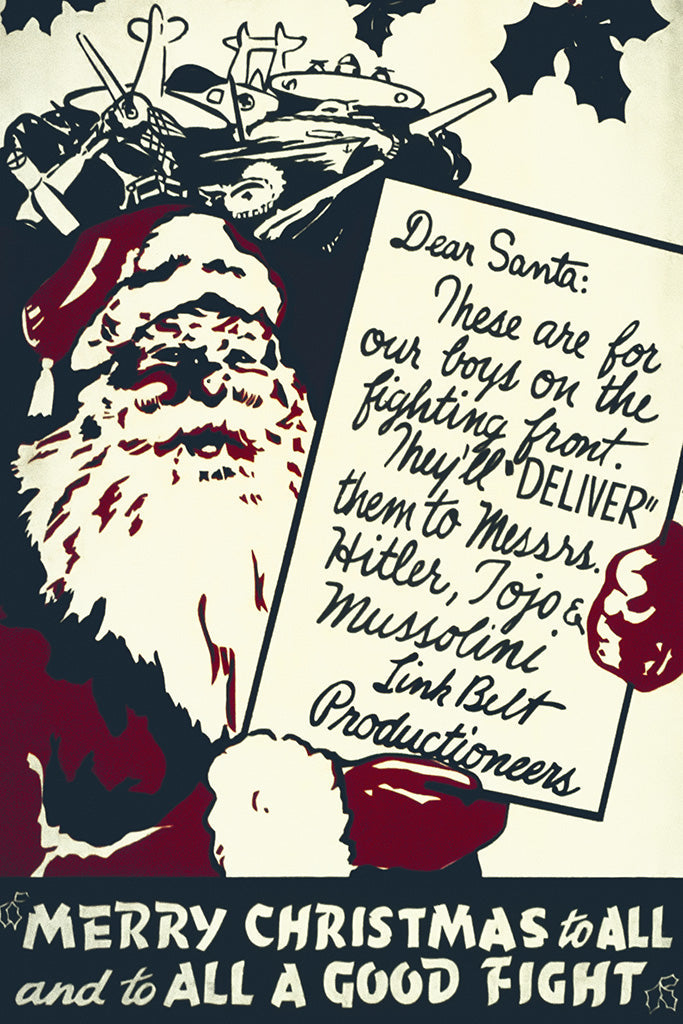 Dear Santa:
These are for
our boys on the
fighting front.
They'll "DELIVER"
them to Messrs.
Hitler, Tojo &
Mussolini
Link Belt
Productioneers
MERRY CHRISTMAS to ALL
and to ALL A GOOD FIGHT